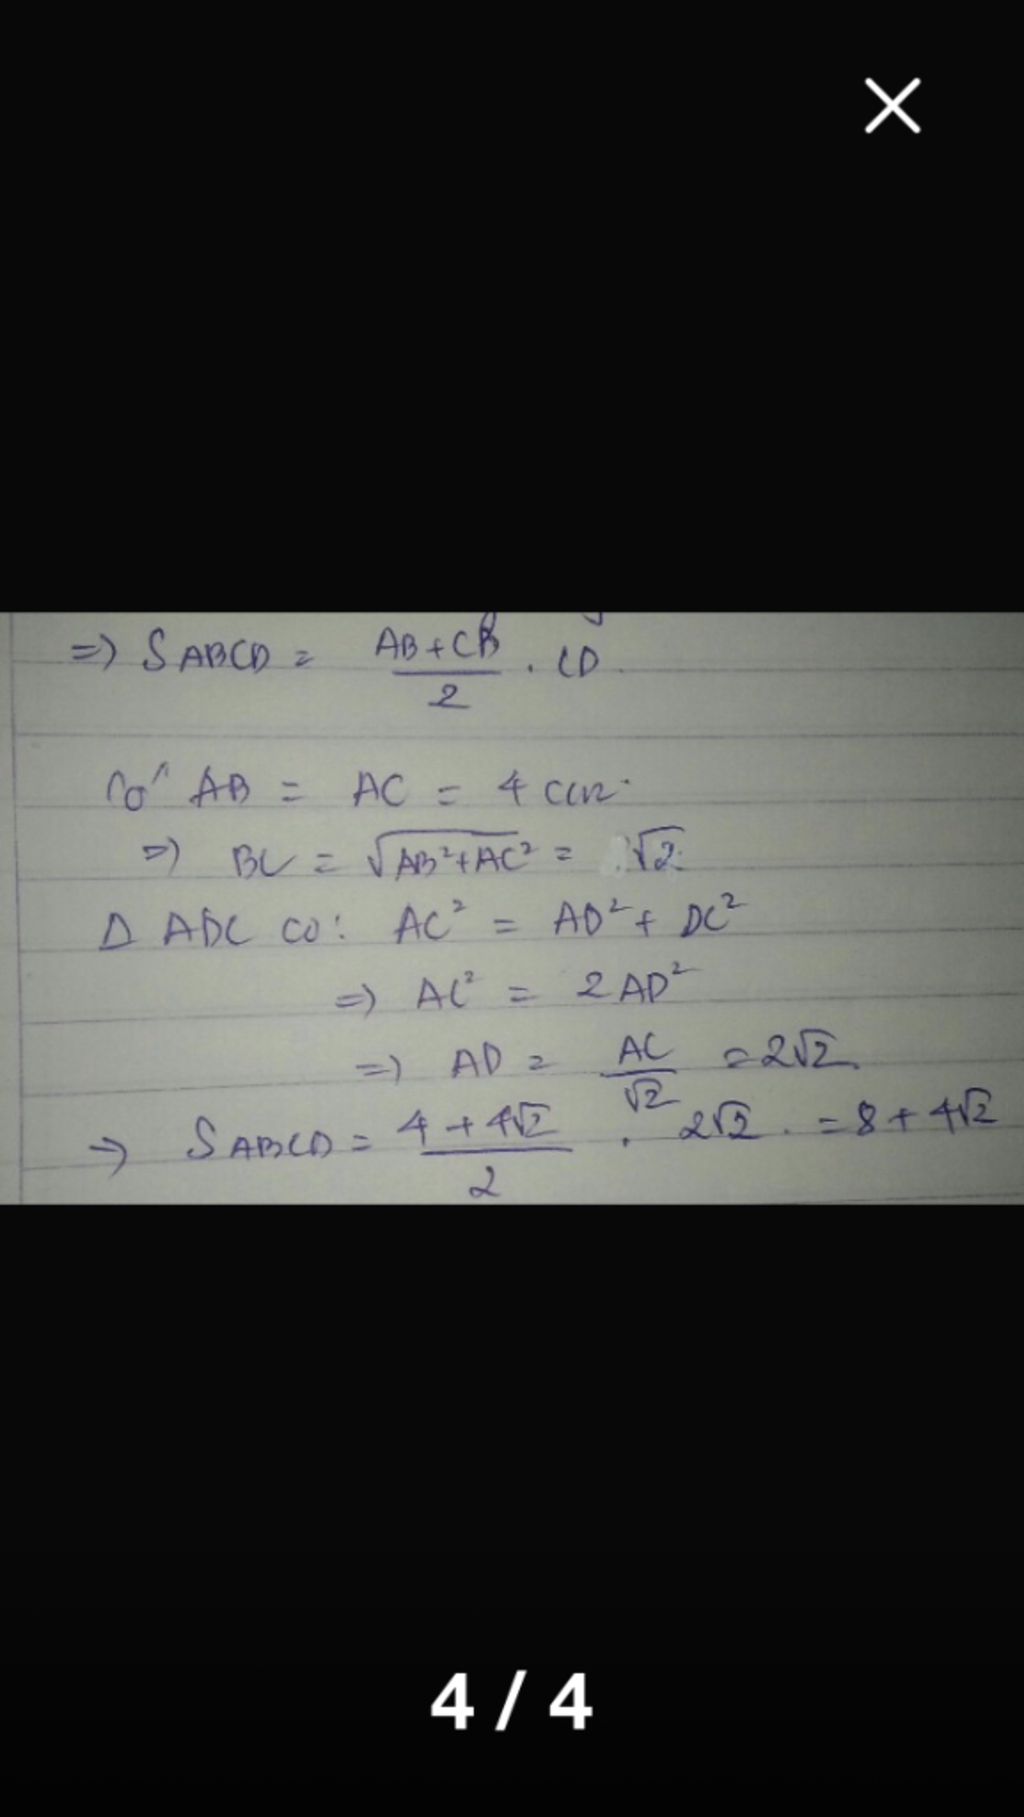 => SABCD = (AB + CB)/2 . CD
Có AB = AC = 4 cm.
=> BC = √(AB² + AC²) = √2.
Δ ADC có: AC² = AD² + DC²
=> AC² = 2AD²
=> AD = AC/√2 = 2√2.
=> SABCD = (4 + 4√2)/2 . 2√2 . = 8 + 4√2
4 / 4